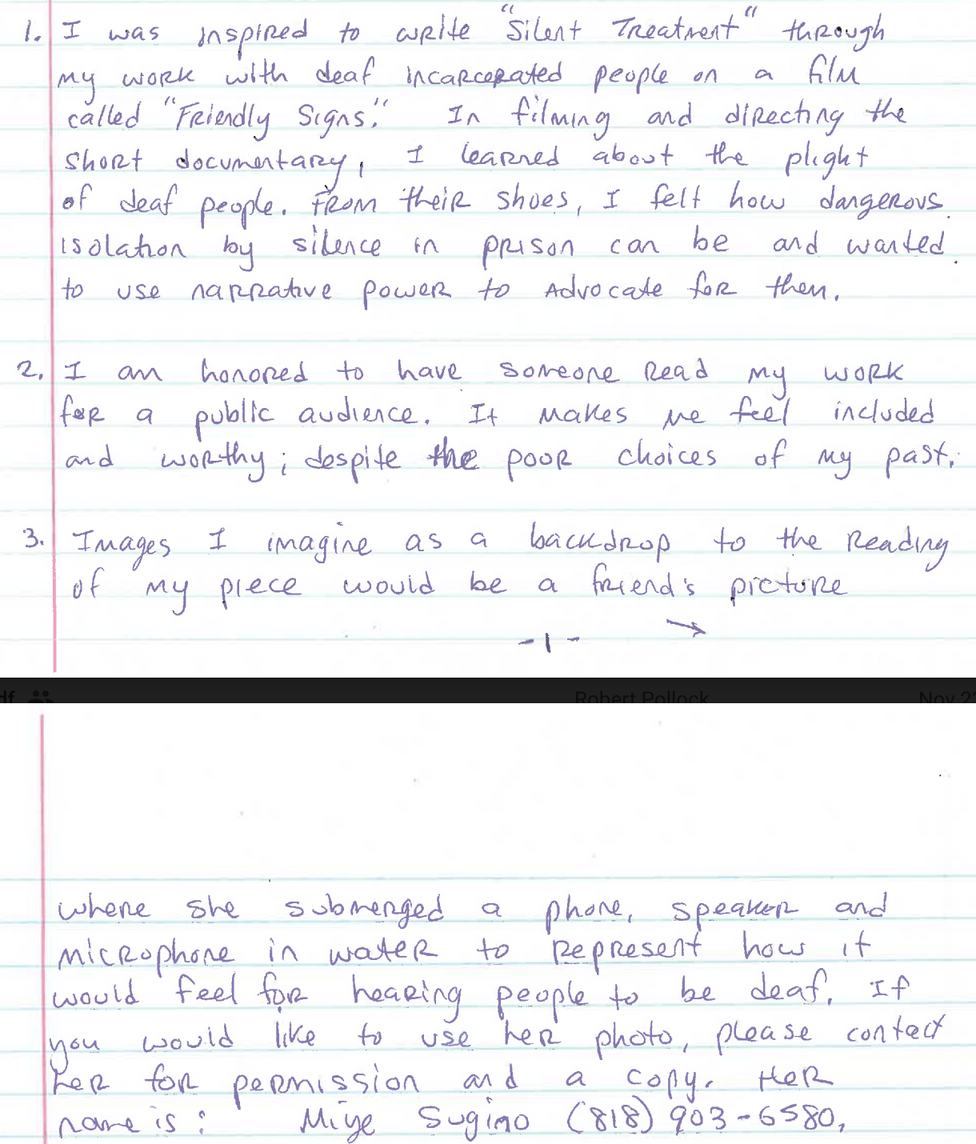 1. I was inspired to write "Silent Treatment" through
my work with deaf incarcerated people on a film
called "Friendly Signs." In filming and directing the
short documentary, I learned about the plight
of deaf people. From their shoes, I felt how dangerous
isolation by silence in prison can be and wanted
to use narrative power to advocate for them.
2. I am honored to have someone read my work
for a public audience. It makes me feel included
and worthy; despite the poor choices of my past.
3. Images I imagine as a backdrop to the reading
of my piece would be a friend's picture
-1- →
df Robert Pollock Nov 2
where she submerged a phone, speaker and
microphone in water to represent how it
would feel for hearing people to be deaf. If
you would like to use her photo, please contact
her for permission and a copy. Her
name is: Miye Sugino (818) 903-6580.